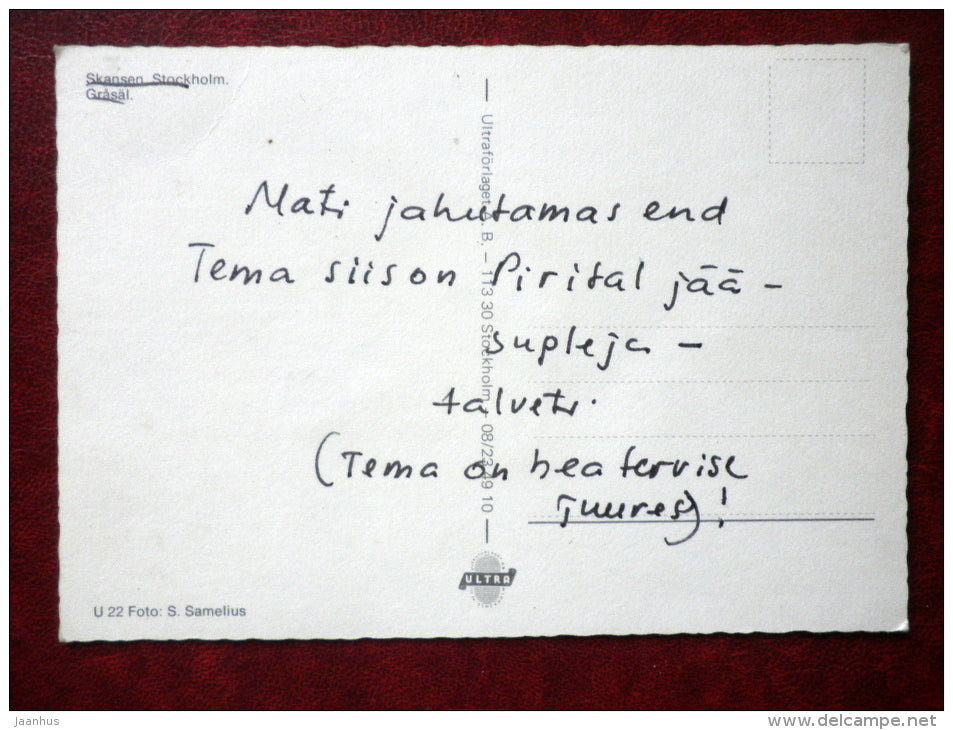 Skansen Stockholm.
Gråsäl.
Mati jahutamas end
Tema siis on Pirital jää-
supleja -
talveti.
(Tema on hea tervise
juures)!
Ultraförlaget A. B. – 113 30 Stockholm – 08/23 49 10
ULTRA
U 22 Foto: S. Samelius
jaanhus
www.delcampe.net